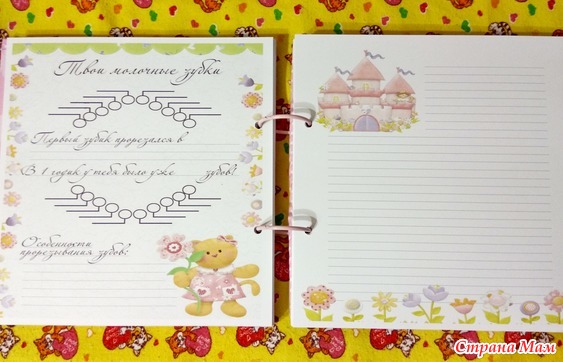 Твои молочные зубки
Первый зубик прорезался в
В 1 годик у тебя было уже зубов!
Особенности
прорезывания зубов:
Страна Мам